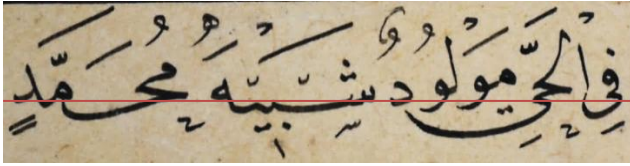 فِي الْحَيِّ مَوْلُودٌ شَبِيهُ مُحَمَّدٍ